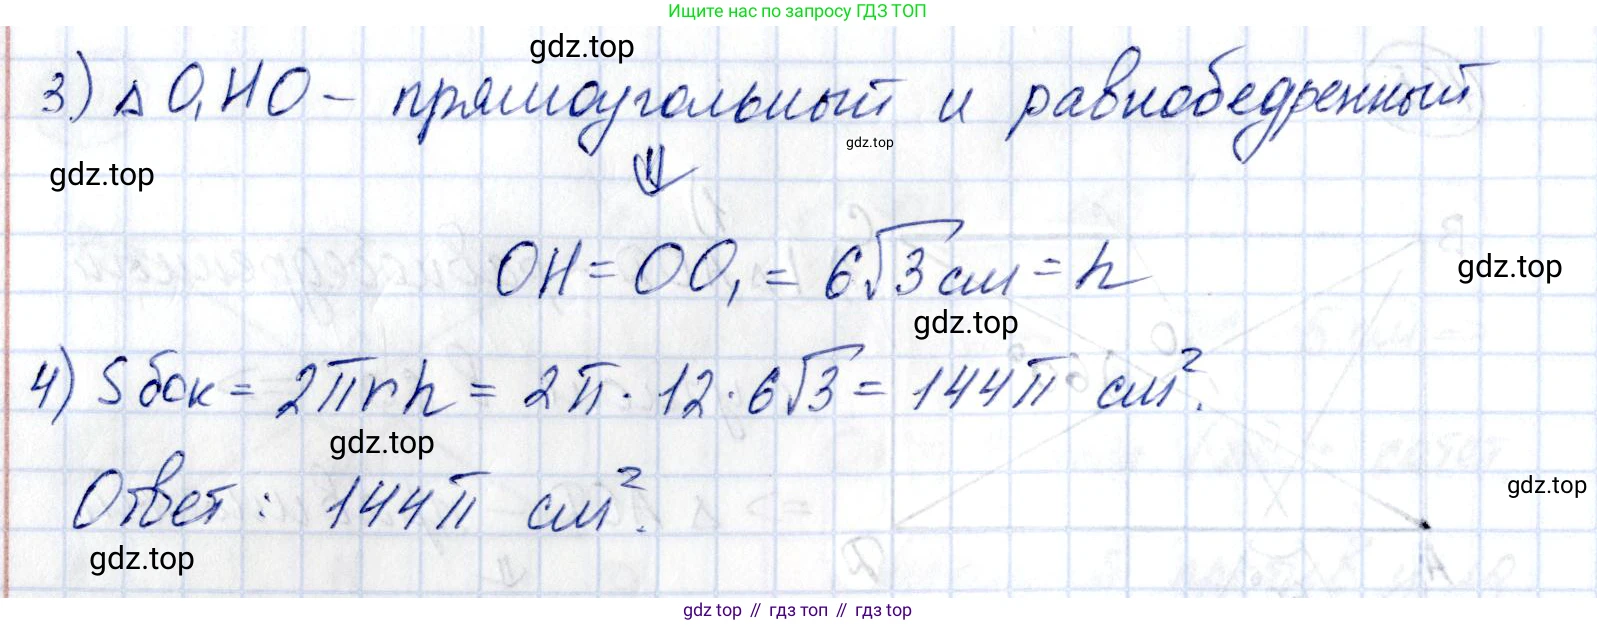 Ищите нас по запросу ГДЗ ТОП
gdz.top
3) Δ O₁HO – прямоугольный и равнобедренный
gdz.top
gdz.top
gdz.top
⇓
OH = OO₁ = 6√3 см = h
gdz.top
gdz.top
4) Sбок = 2πrh = 2π · 12 · 6√3 = 144π см².
gdz.top
Ответ: 144π см².
gdz.top
gdz.top
gdz top // гдз топ // gdz top